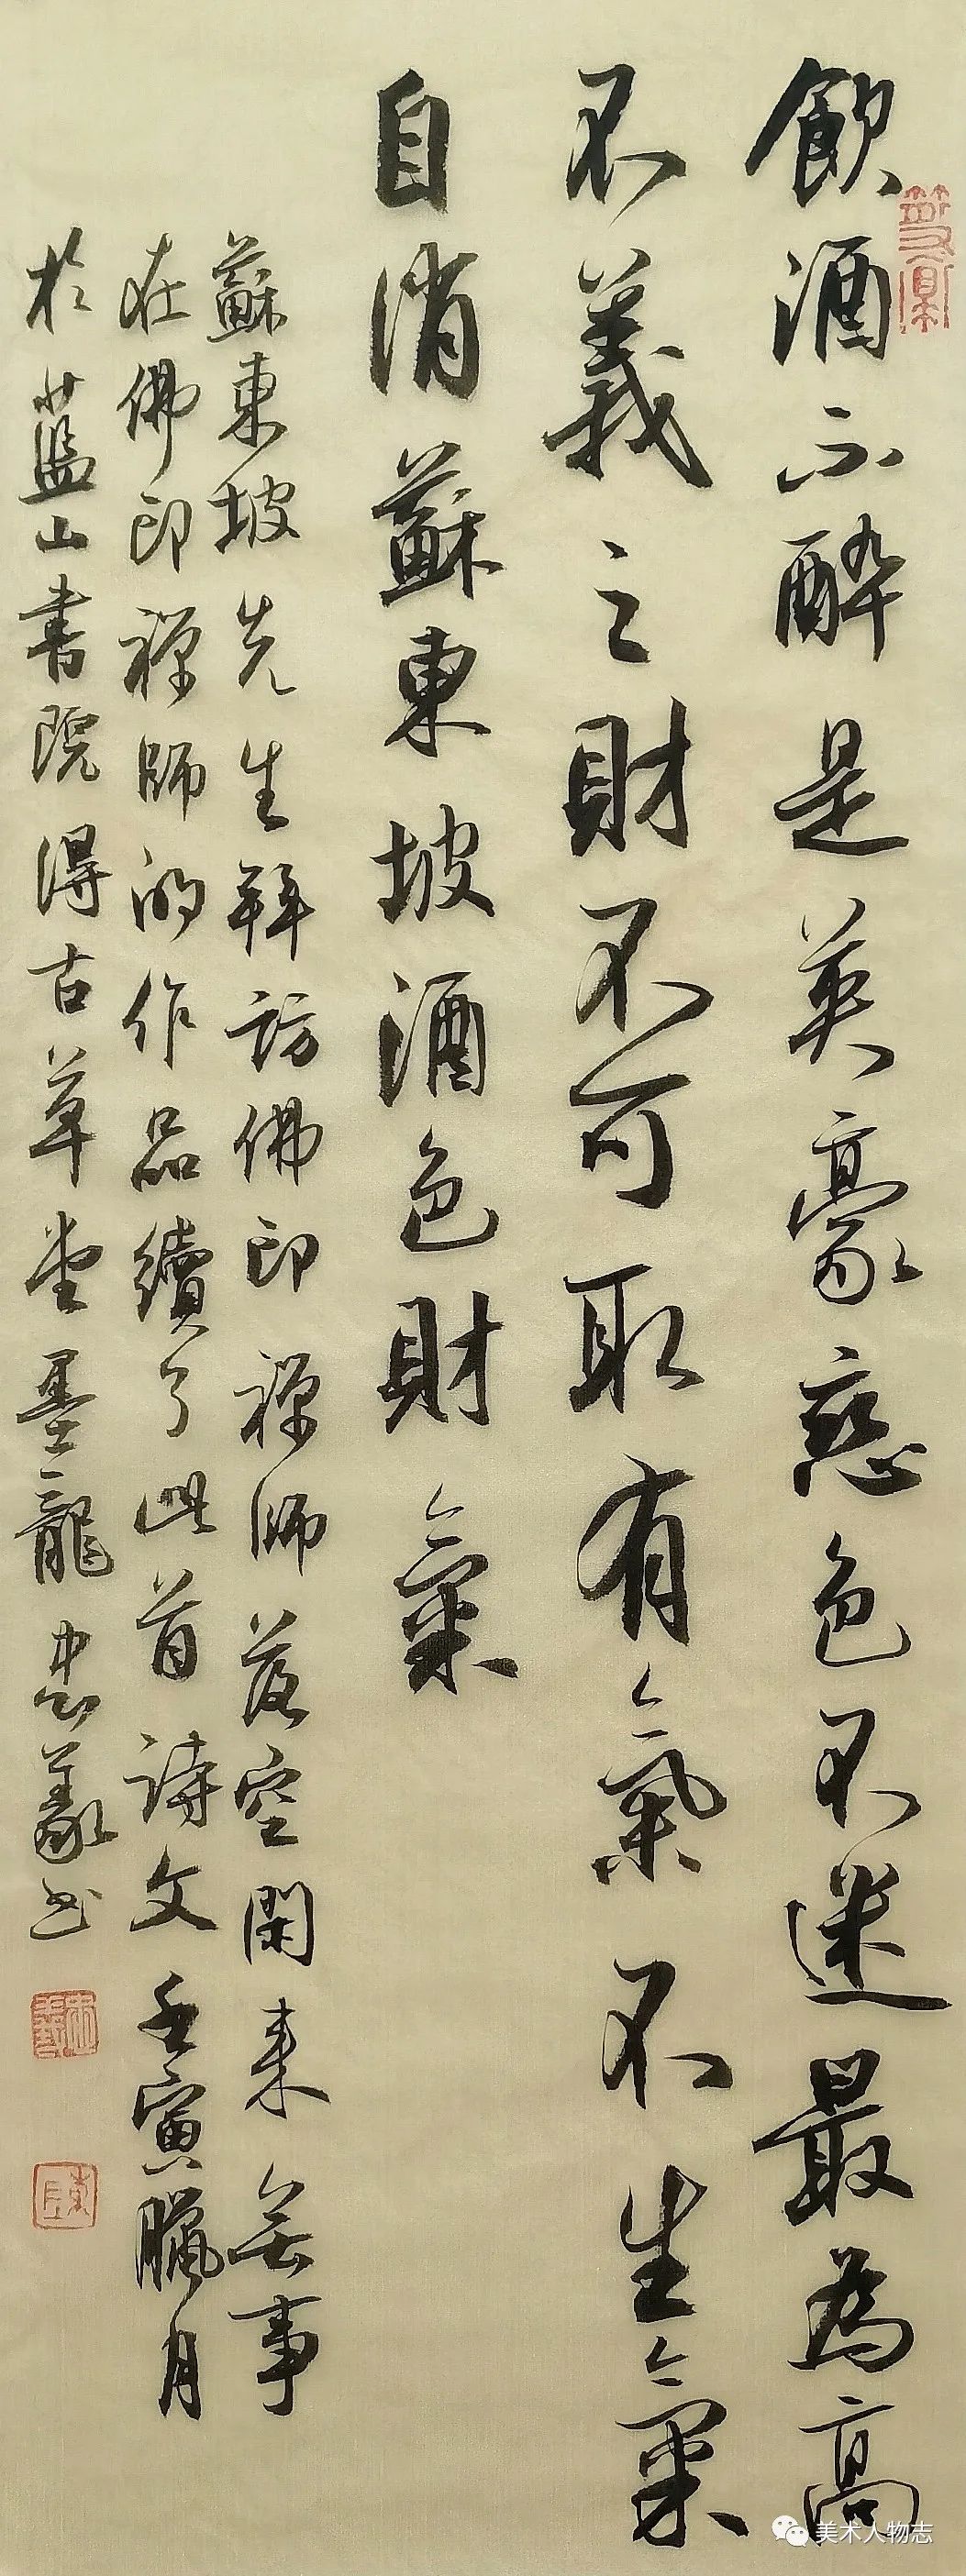 飲酒不醉是英豪戀色不迷最為高
不義之財不可取有氣不生氣
自消蘇東坡酒色財氣
蘇東坡先生拜訪佛印禪師落空閑来無事
在佛印禪師的作品續了此首詩文壬寅臘月
於藍山書院得古草堂墨龍忠義书
美术人物志